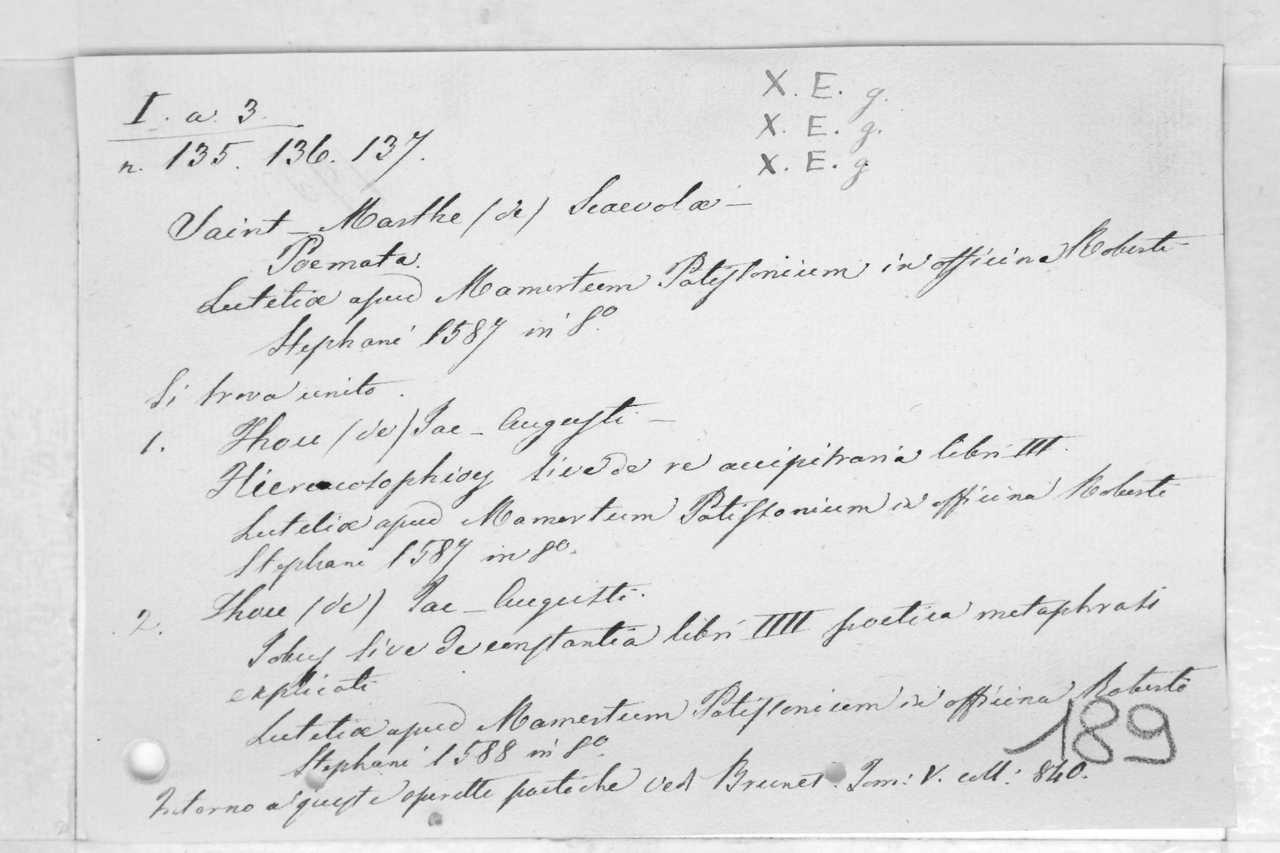 I. a. 3.
n. 135. 136. 137.
X. E. g.
X. E. g.
X. E. g
Saint-Marthe (de) Scaevolæ —
Poemata.
Lutetiæ apud Mamertum Patissonium in officina Roberti
Stephani 1587 in 8º.
Si trova unito.
1. Thou (de) Jac-Augusti —
Hieracosophioy sive de re accipitraria libri III.
Lutetiæ apud Mamertum Patissonium in officina Roberti
Stephani 1587 in 8º.
2. Thou (de) Jac-Augusti.
Jobus sive de constantia libri IIII poetica metaphrasi
explicati
Lutetiæ apud Mamertum Patissonium in officina Roberti
Stephani 1588 in 8º
189
Intorno a queste operette poetiche ved. Brunet. Tom: V. coll: 840.